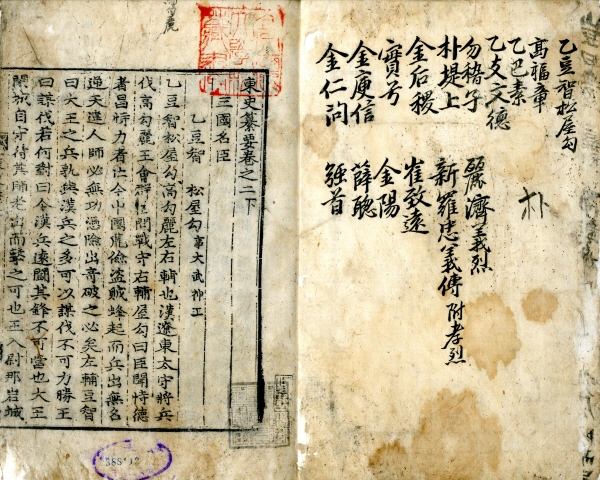 乙豆智松屋勾
高福章
乙巴素
乙支文德
勿稽子
朴堤上
金后稷
實兮
金庾信
金仁問
朴
麗濟義烈
新羅忠義傳 附孝烈
崔致遠
金陽
薛聰
强首
東史纂要卷之二下
三國名臣
乙豆智 松屋勾 事大武神王
乙豆智松屋勾高勾麗左右輔也漢遼東太守將兵
伐高勾麗王會群臣問戰守右輔屋勾曰臣聞恃德
者昌恃力者亡今中國荒儉盜賊蜂起而兵出無名
逆天違人師必無功憑險出奇破之必矣左輔豆智
曰大王之兵孰與漢兵之多可以謀伐不可力勝王
曰謀伐若何對曰今漢兵遠鬪其鋒不可當也大王
閉城自守待其師老出而擊之可也王入尉那岩城